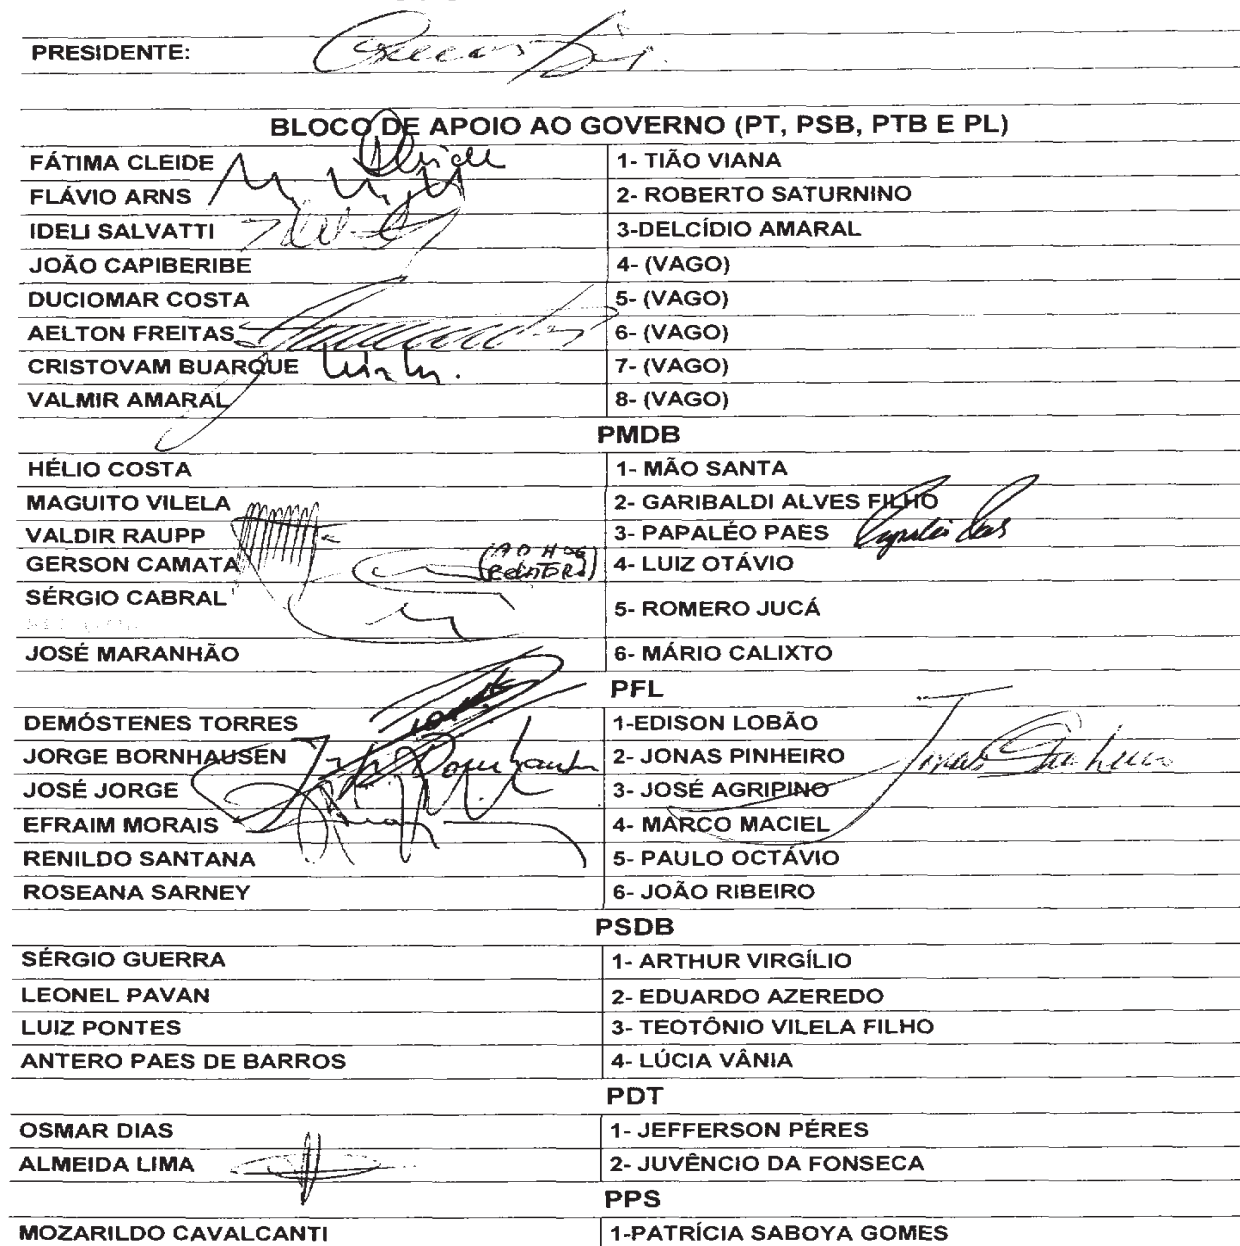 PRESIDENTE:
BLOCO DE APOIO AO GOVERNO (PT, PSB, PTB E PL)
FÁTIMA CLEIDE 1- TIÃO VIANA
FLÁVIO ARNS 2- ROBERTO SATURNINO
IDELI SALVATTI 3-DELCÍDIO AMARAL
JOÃO CAPIBERIBE 4- (VAGO)
DUCIOMAR COSTA 5- (VAGO)
AELTON FREITAS 6- (VAGO)
CRISTOVAM BUARQUE 7- (VAGO)
VALMIR AMARAL 8- (VAGO)
PMDB
HÉLIO COSTA 1- MÃO SANTA
MAGUITO VILELA 2- GARIBALDI ALVES FILHO
VALDIR RAUPP 3- PAPALÉO PAES Papaléo Paes
GERSON CAMATA (AD HOC RELATOR) 4- LUIZ OTÁVIO
SÉRGIO CABRAL 5- ROMERO JUCÁ
JOSÉ MARANHÃO 6- MÁRIO CALIXTO
PFL
DEMÓSTENES TORRES 1-EDISON LOBÃO
JORGE BORNHAUSEN 2- JONAS PINHEIRO Jonas Pinheiro
JOSÉ JORGE 3- JOSÉ AGRIPINO
EFRAIM MORAIS 4- MARCO MACIEL
RENILDO SANTANA 5- PAULO OCTÁVIO
ROSEANA SARNEY 6- JOÃO RIBEIRO
PSDB
SÉRGIO GUERRA 1- ARTHUR VIRGÍLIO
LEONEL PAVAN 2- EDUARDO AZEREDO
LUIZ PONTES 3- TEOTÔNIO VILELA FILHO
ANTERO PAES DE BARROS 4- LÚCIA VÂNIA
PDT
OSMAR DIAS 1- JEFFERSON PÉRES
ALMEIDA LIMA 2- JUVÊNCIO DA FONSECA
PPS
MOZARILDO CAVALCANTI 1-PATRÍCIA SABOYA GOMES